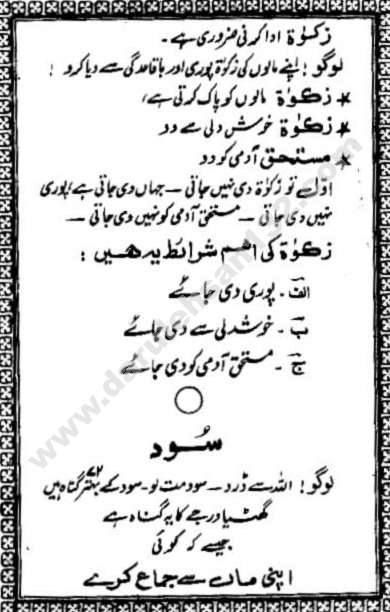 زکوٰۃ ادا کرنی ضروری ہے۔
لوگو! اپنے مالوں کی زکوٰۃ پوری اور باقاعدگی سے دیا کرو!
★ زکوٰۃ مالوں کو پاک کرتی ہے،
★ زکوٰۃ خوش دلی سے دو
★ مستحق آدمی کو دو
اوّل تو زکوٰۃ دی نہیں جاتی — جہاں دی جاتی ہے، پوری
نہیں دی جاتی — مستحق آدمی کو نہیں دی جاتی —
زکوٰۃ کی اہم شرائط یہ ہیں:
الف۔ پوری دی جائے
ب۔ خوشدلی سے دی جائے
ج۔ مستحق آدمی کو دی جائے
سُود
لوگو! اللہ سے ڈرو — سود مت لو۔ سود کے بہتّر ۷۲ گناہ ہیں
گھٹیا درجے کا یہ گناہ ہے
جیسے کہ کوئی
اپنی ماں سے جماع کرے